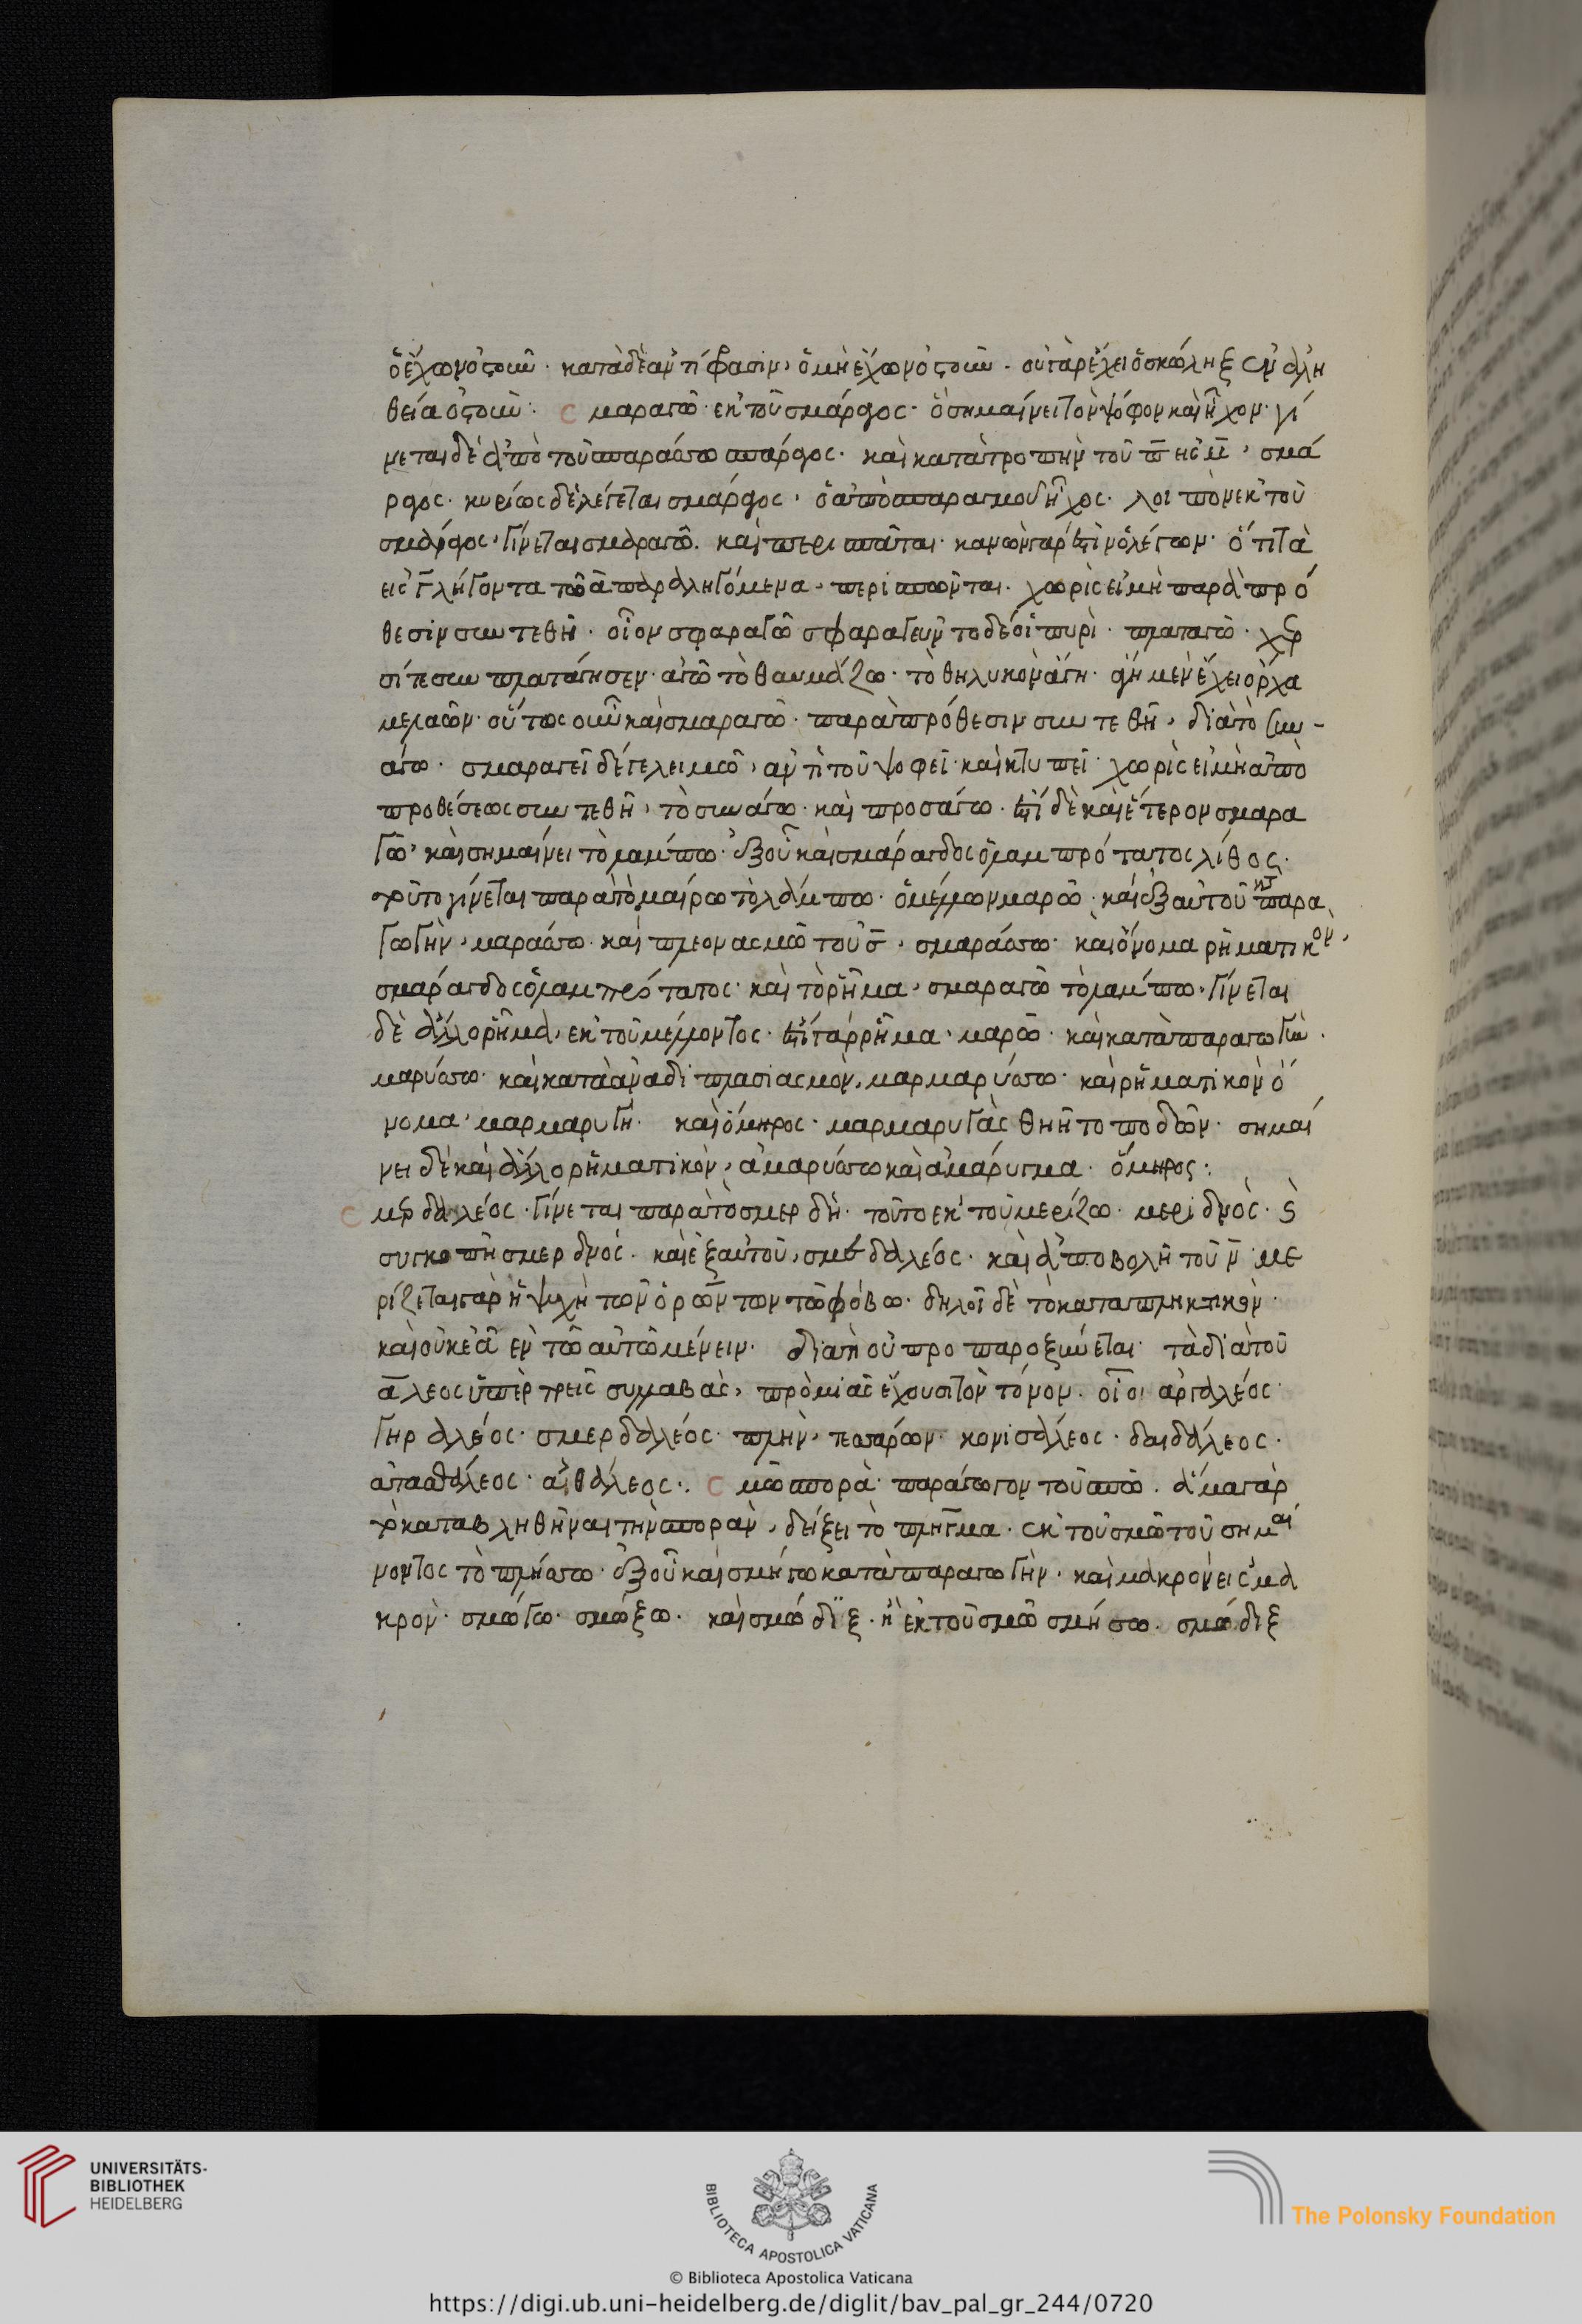 ὁ ἔχων ὀστοῦν· κατὰ δὲ ἀντίφρασιν, ὁ μὴ ἔχων ὀστοῦν· οὐ γὰρ ἔχει ὁ σκώληξ ἐν ἀλη
θεία ὀστοῦν: σμαραγῶ· ἐκ τοῦ σμάραγος· ὃ σημαίνει τὸν ψόφον καὶ ἦχον· γί
νεται δὲ ἀπὸ τοῦ σπαράσσω σπάραγος· καὶ κατὰ τροπὴν τοῦ π εἰς μ, σμά
ραγος· κυρίως δὲ λέγεται σμάραγος, ὁ ἀπὸ σπαραγμοῦ ἦχος· λοιπὸν ἐκ τοῦ
σμάραγος, γίνεται σμαραγῶ· καὶ περισπᾶται· κανὼν γάρ ἐστιν ὁ λέγων· ὅτι τὰ
εἰς γ λήγοντα τῶ α παραληγόμενα, περισπῶνται· χωρὶς εἰ μὴ παρὰ πρό
θεσιν συντεθῆ· οἷον σφαραγῶ σφαραγεῦντο δέ οἱ πυρὶ· πλαταγῶ· χερ
σί τε συμπλατάγησεν· ἀγῶ τὸ θαυμάζω· τὸ θηλυκὸν ἄγη· ἄγη μὲν ἔχει ὀρχα
μελαῶν· οὕτως οὖν καὶ σμαραγῶ· παρὰ πρόθεσιν συντεθῆ, διὰ τὸ συν-
άγω· σμαραγεῖ δέ τε λειμὼν, ἀντὶ τοῦ ψοφεῖ· καὶ κτυπεῖ· χωρὶς εἰ μὴ ἀπὸ
προθέσεως συντεθῆ, τὸ συνάγω· καὶ προσάγω· ἐστὶ δὲ καὶ ἕτερον σμαρα
γῶ, καὶ σημαίνει τὸ λάμπω· ἐξ οὗ καὶ σμάραγδος ὁ λαμπρότατος λίθος·
τοῦτο γίνεται παρὰ τὸ μαίρω τὸ λάμπω· ὁ μέλλων μαρῶ· καὶ ἐξ αὐτοῦ κατὰ παρα
γωγὴν, μαράσσω· καὶ πλεονασμῶ τοῦ σ, σμαράσσω· καὶ ὄνομα ῥηματικὸν,
σμάραγδος ὁ λαμπρότατος· καὶ τὸ ῥῆμα, σμαραγῶ τὸ λάμπω· γίνεται
δὲ ἄλλο ῥῆμα, ἐκ τοῦ μέλλοντος· ἐστὶ γὰρ ῥῆμα· μαρῶ· καὶ κατὰ παραγωγὴν·
μαρύσσω· καὶ κατὰ ἀναδιπλασιασμὸν, μαρμαρύσσω· καὶ ῥηματικὸν ὄ
νομα, μαρμαρυγή· καὶ ὅμηρος· μαρμαρυγὰς θηεῖτο ποδῶν· σημαί
νει δὲ καὶ ἄλλο ῥηματικὸν, ἀμαρύσσω καὶ ἀμάρυγμα· ὅμηρος:
σμερδαλέος· γίνεται παρὰ τὸ σμερδή· τοῦτο ἐκ τοῦ μερίζω· μεριδνὸς· καὶ
συγκοπῆ σμερδνός· καὶ ἐξ αὐτοῦ, σμερδαλέος· καὶ ἀποβολῆ τοῦ ν· με
ρίζεται γὰρ ἡ ψυχὴ τῶν ὁρώντων τῶ φόβω· δηλοῖ δὲ τὸ καταπληκτικὸν·
καὶ οὐκ ἐᾶ ἐν τῶ αὐτῶ μένειν· διατί οὐ προπαροξύνεται· τὰ διὰ τοῦ
αλεος ὑπὲρ τρεῖς συλλαβὰς, πρὸ μιᾶς ἔχουσι τὸν τόνον· οἷον ἀργαλέος·
γηραλέος· σμερδαλέος· πλὴν, τεσσάρων· κονισάλεος· δαιδάλεος·
ἀτασθάλεος· αἰθάλεος: σμῶ σπορὰ· παράγωγον τοῦ σπῶ· ἅμα γὰρ
τὸ καταβληθῆναι τὴν σπορὰν, δείξει τὸ πλῆγμα· ἐκ τοῦ σμῶ τοῦ σημαί
νοντος τὸ πλήσσω· ἐξ οὗ καὶ σμήγω κατὰ παραγωγὴν· καὶ μακρὸν εἰς μα
κρὸν· σμώγω· σμώξω· καὶ σμῶδιξ· ἢ ἐκ τοῦ σμῶ σμήσω· σμῶδιξ
UNIVERSITÄTS-
BIBLIOTHEK
HEIDELBERG
BIBLIOTECA APOSTOLICA VATICANA
The Polonsky Foundation
© Biblioteca Apostolica Vaticana
https://digi.ub.uni-heidelberg.de/diglit/bav_pal_gr_244/0720